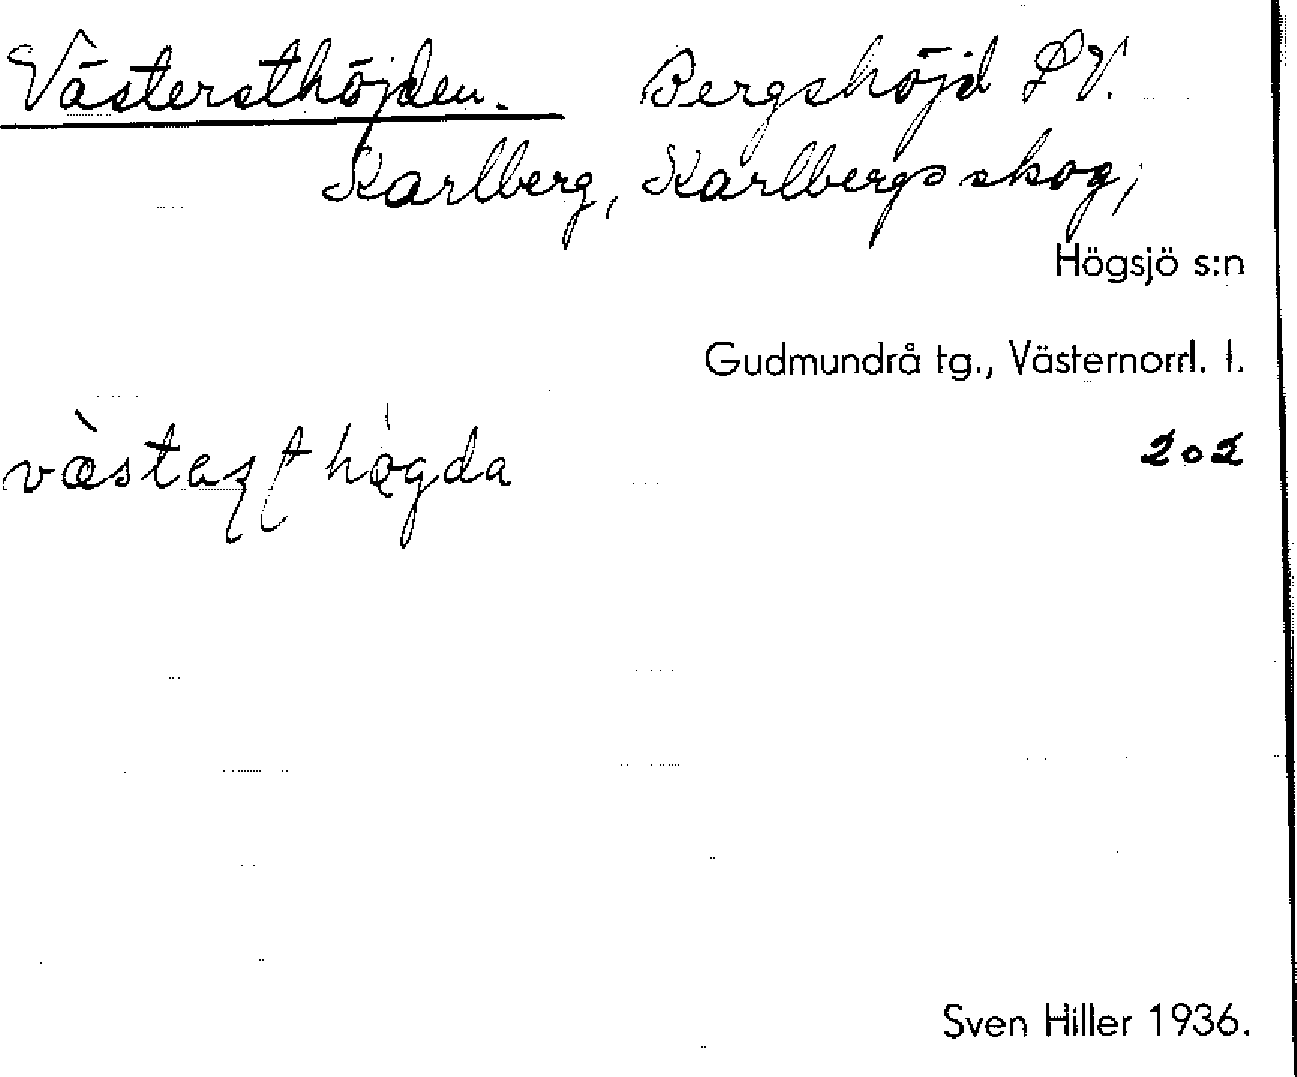 Västersthöjden. Bergshöjd S.V.
Karlberg, Karlbergsskog,
Högsjö s:n
Gudmundrå tg., Västernorrl. l.
202
Sven Hiller 1936.